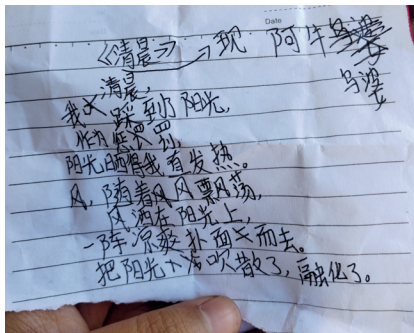 Date
《清晨》 现 阿牛
乌梁
清晨,
我又踩到了阳光,
作为惩罚,
阳光晒得我直发热。
风,随着风飘荡,
风洒在阳光上,
一阵凉爽扑面而去。
把阳光吹散了,融化了。